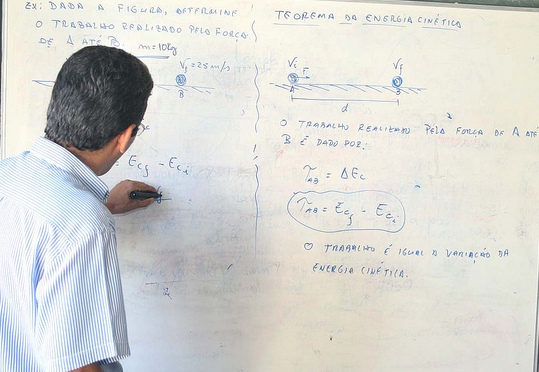 EX: DADA A FIGURA, DETERMINE
O TRABALHO REALIZADO PELA FORÇA
DE A ATÉ B. m=10kg
Vf=25m/s
B
Ecf - Eci
TEOREMA DA ENERGIA CINÉTICA
Vi Vf
F
A B
d
O TRABALHO REALIZADO PELA FORÇA DE A ATÉ
B É DADO POR:
τAB = ΔEc
τAB = Ecf - Eci
O TRABALHO É IGUAL A VARIAÇÃO DA
ENERGIA CINÉTICA.